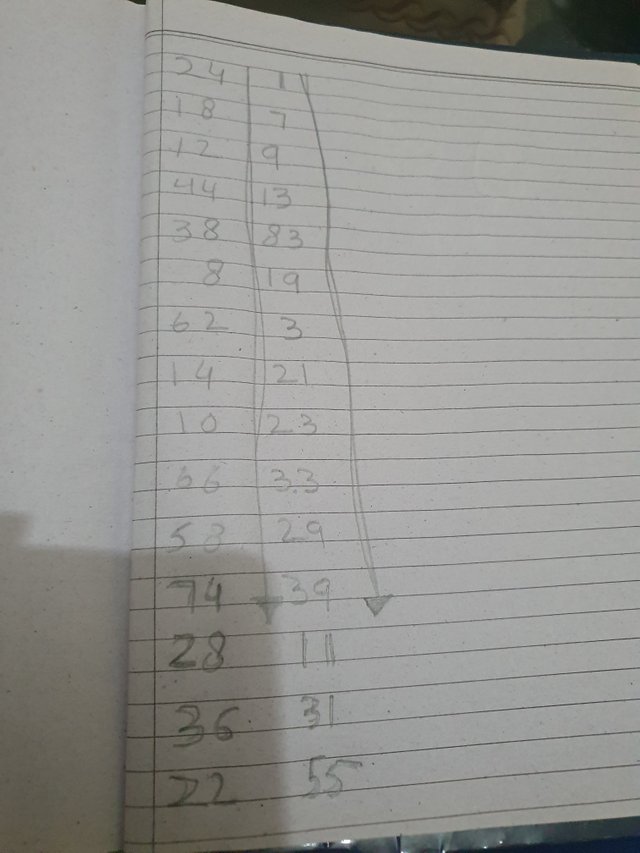 24 1
18 7
12 9
44 13
38 83
8 19
62 3
14 21
10 23
66 3.3
58 29
74 39
28 11
36 31
22 55